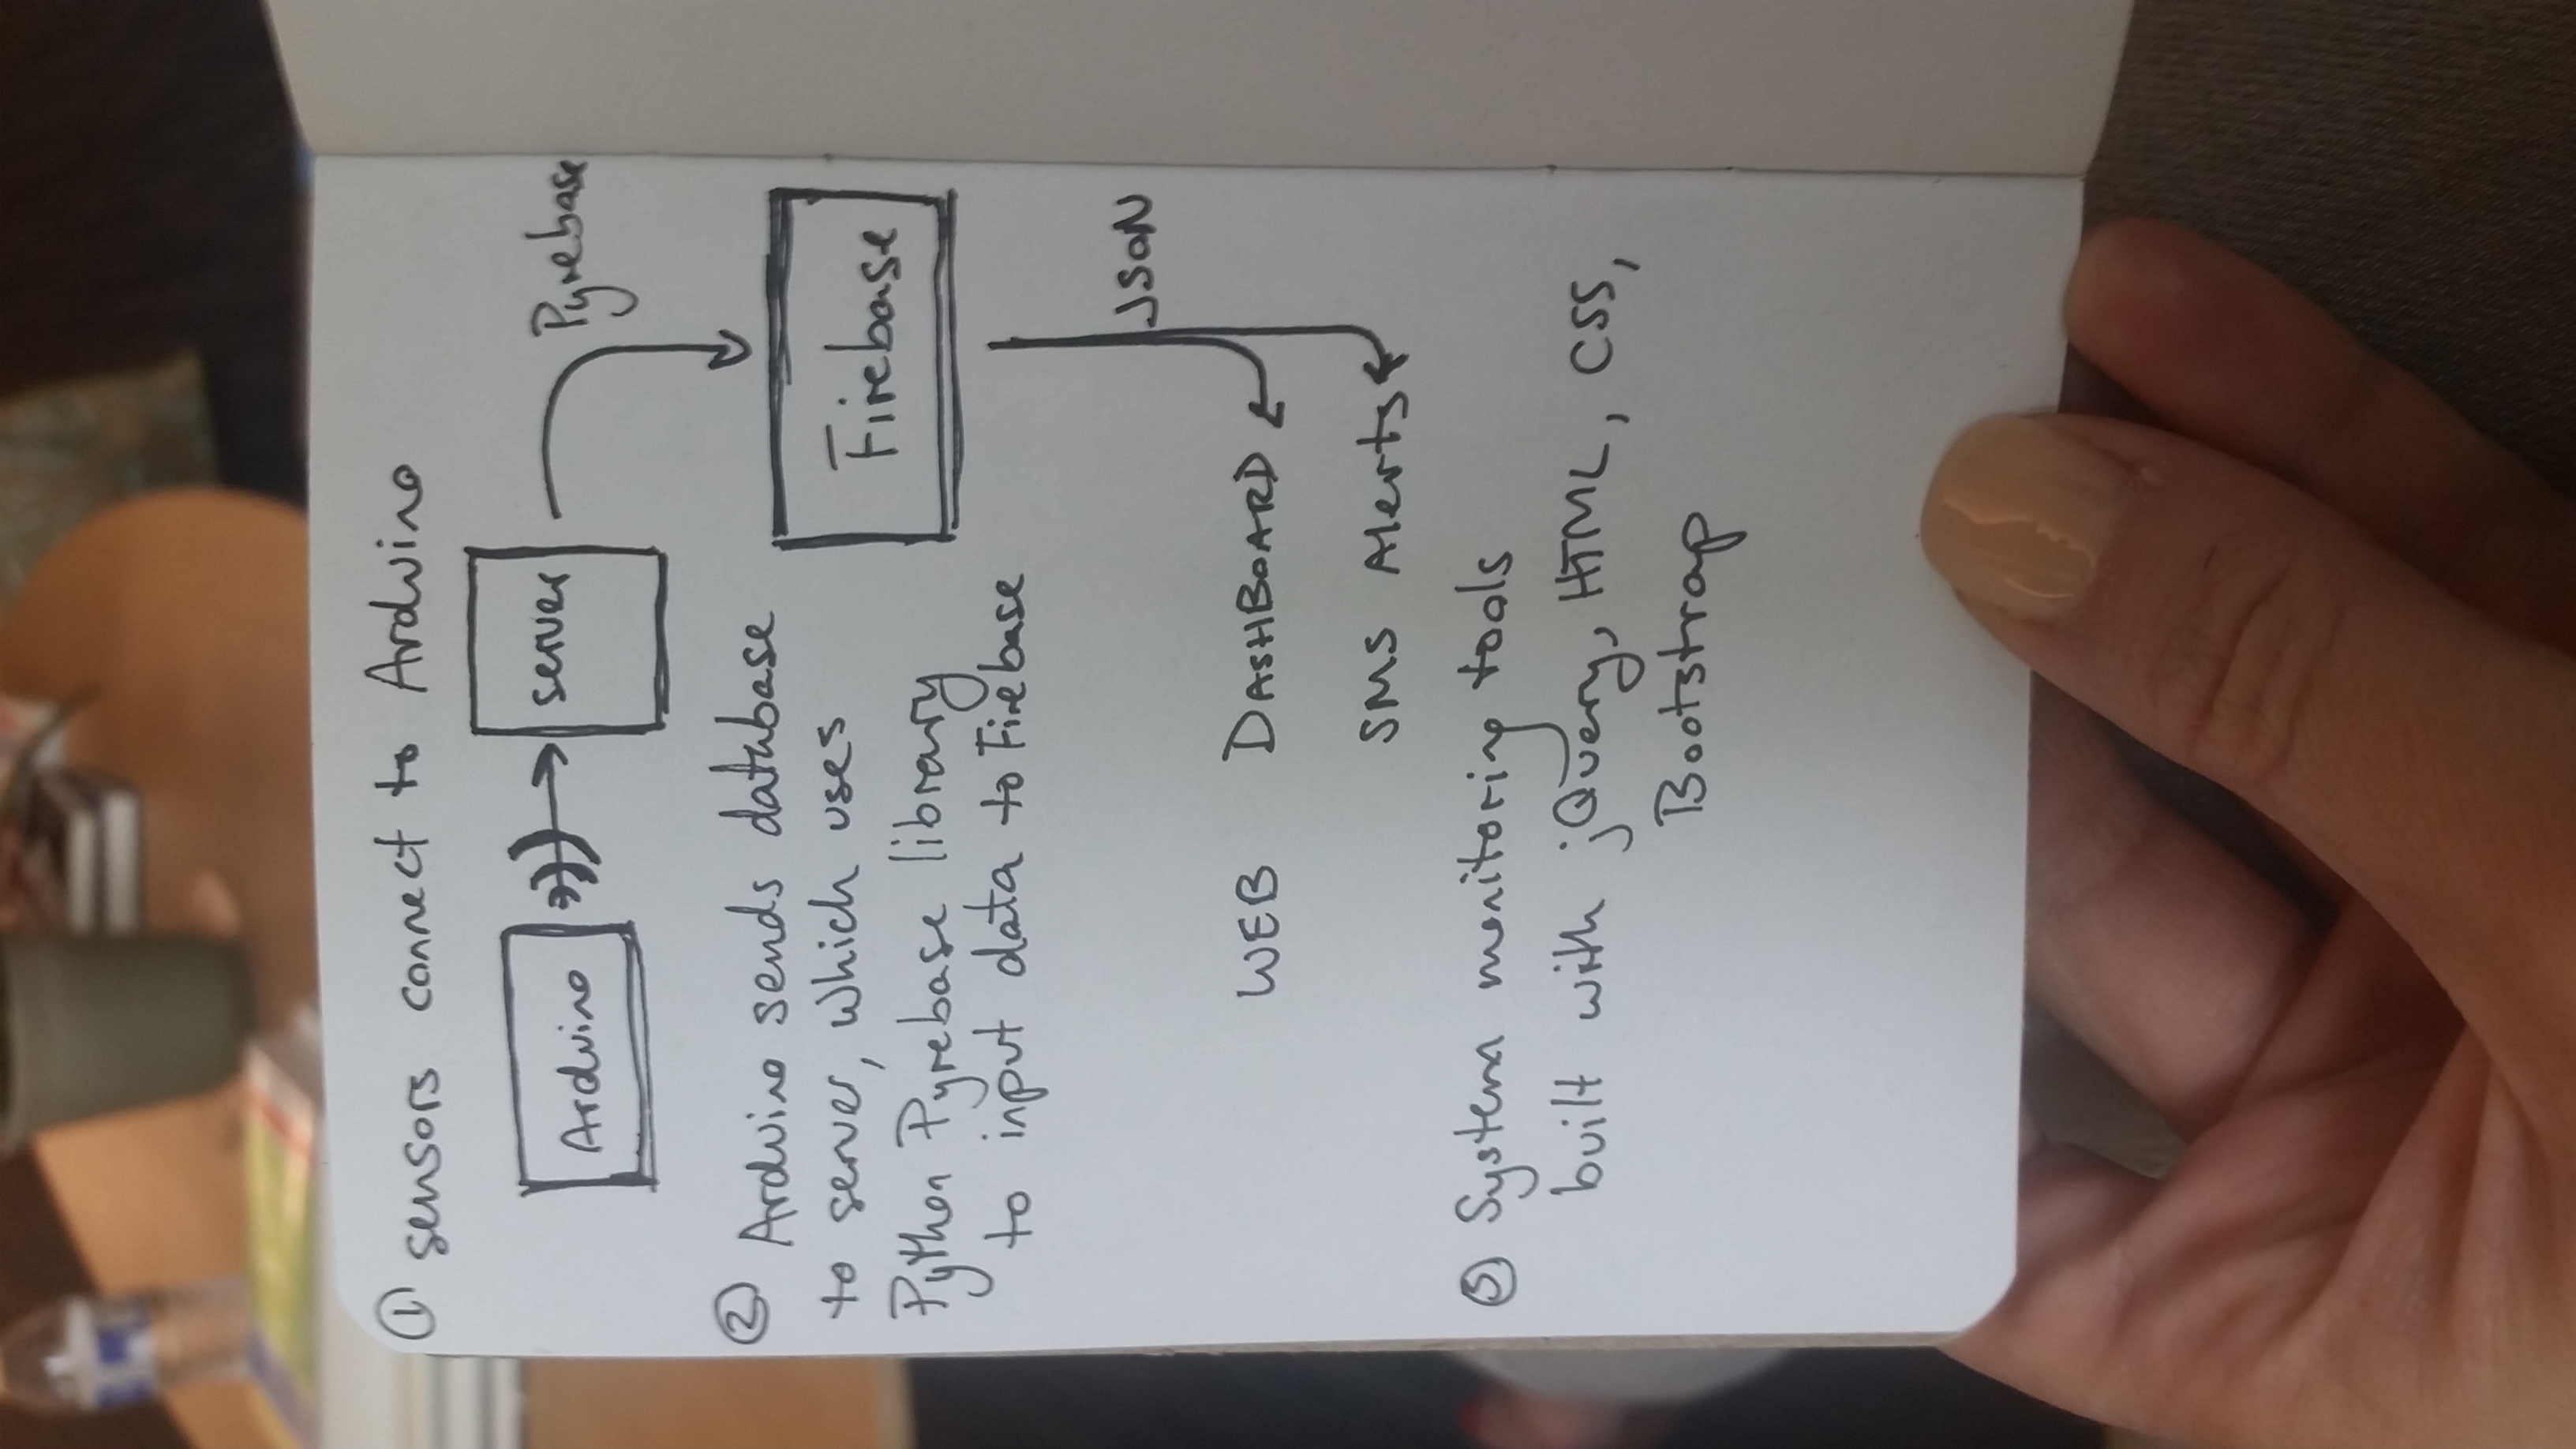 ① sensors connect to Arduino
Arduino
server
Pyrebase
② Arduino sends database
to server, which uses
Python Pyrebase library
to input data to Firebase
Firebase
JSON
WEB DASHBOARD
SMS Alerts
③ System monitoring tools
built with jQuery, HTML, CSS,
Bootstrap